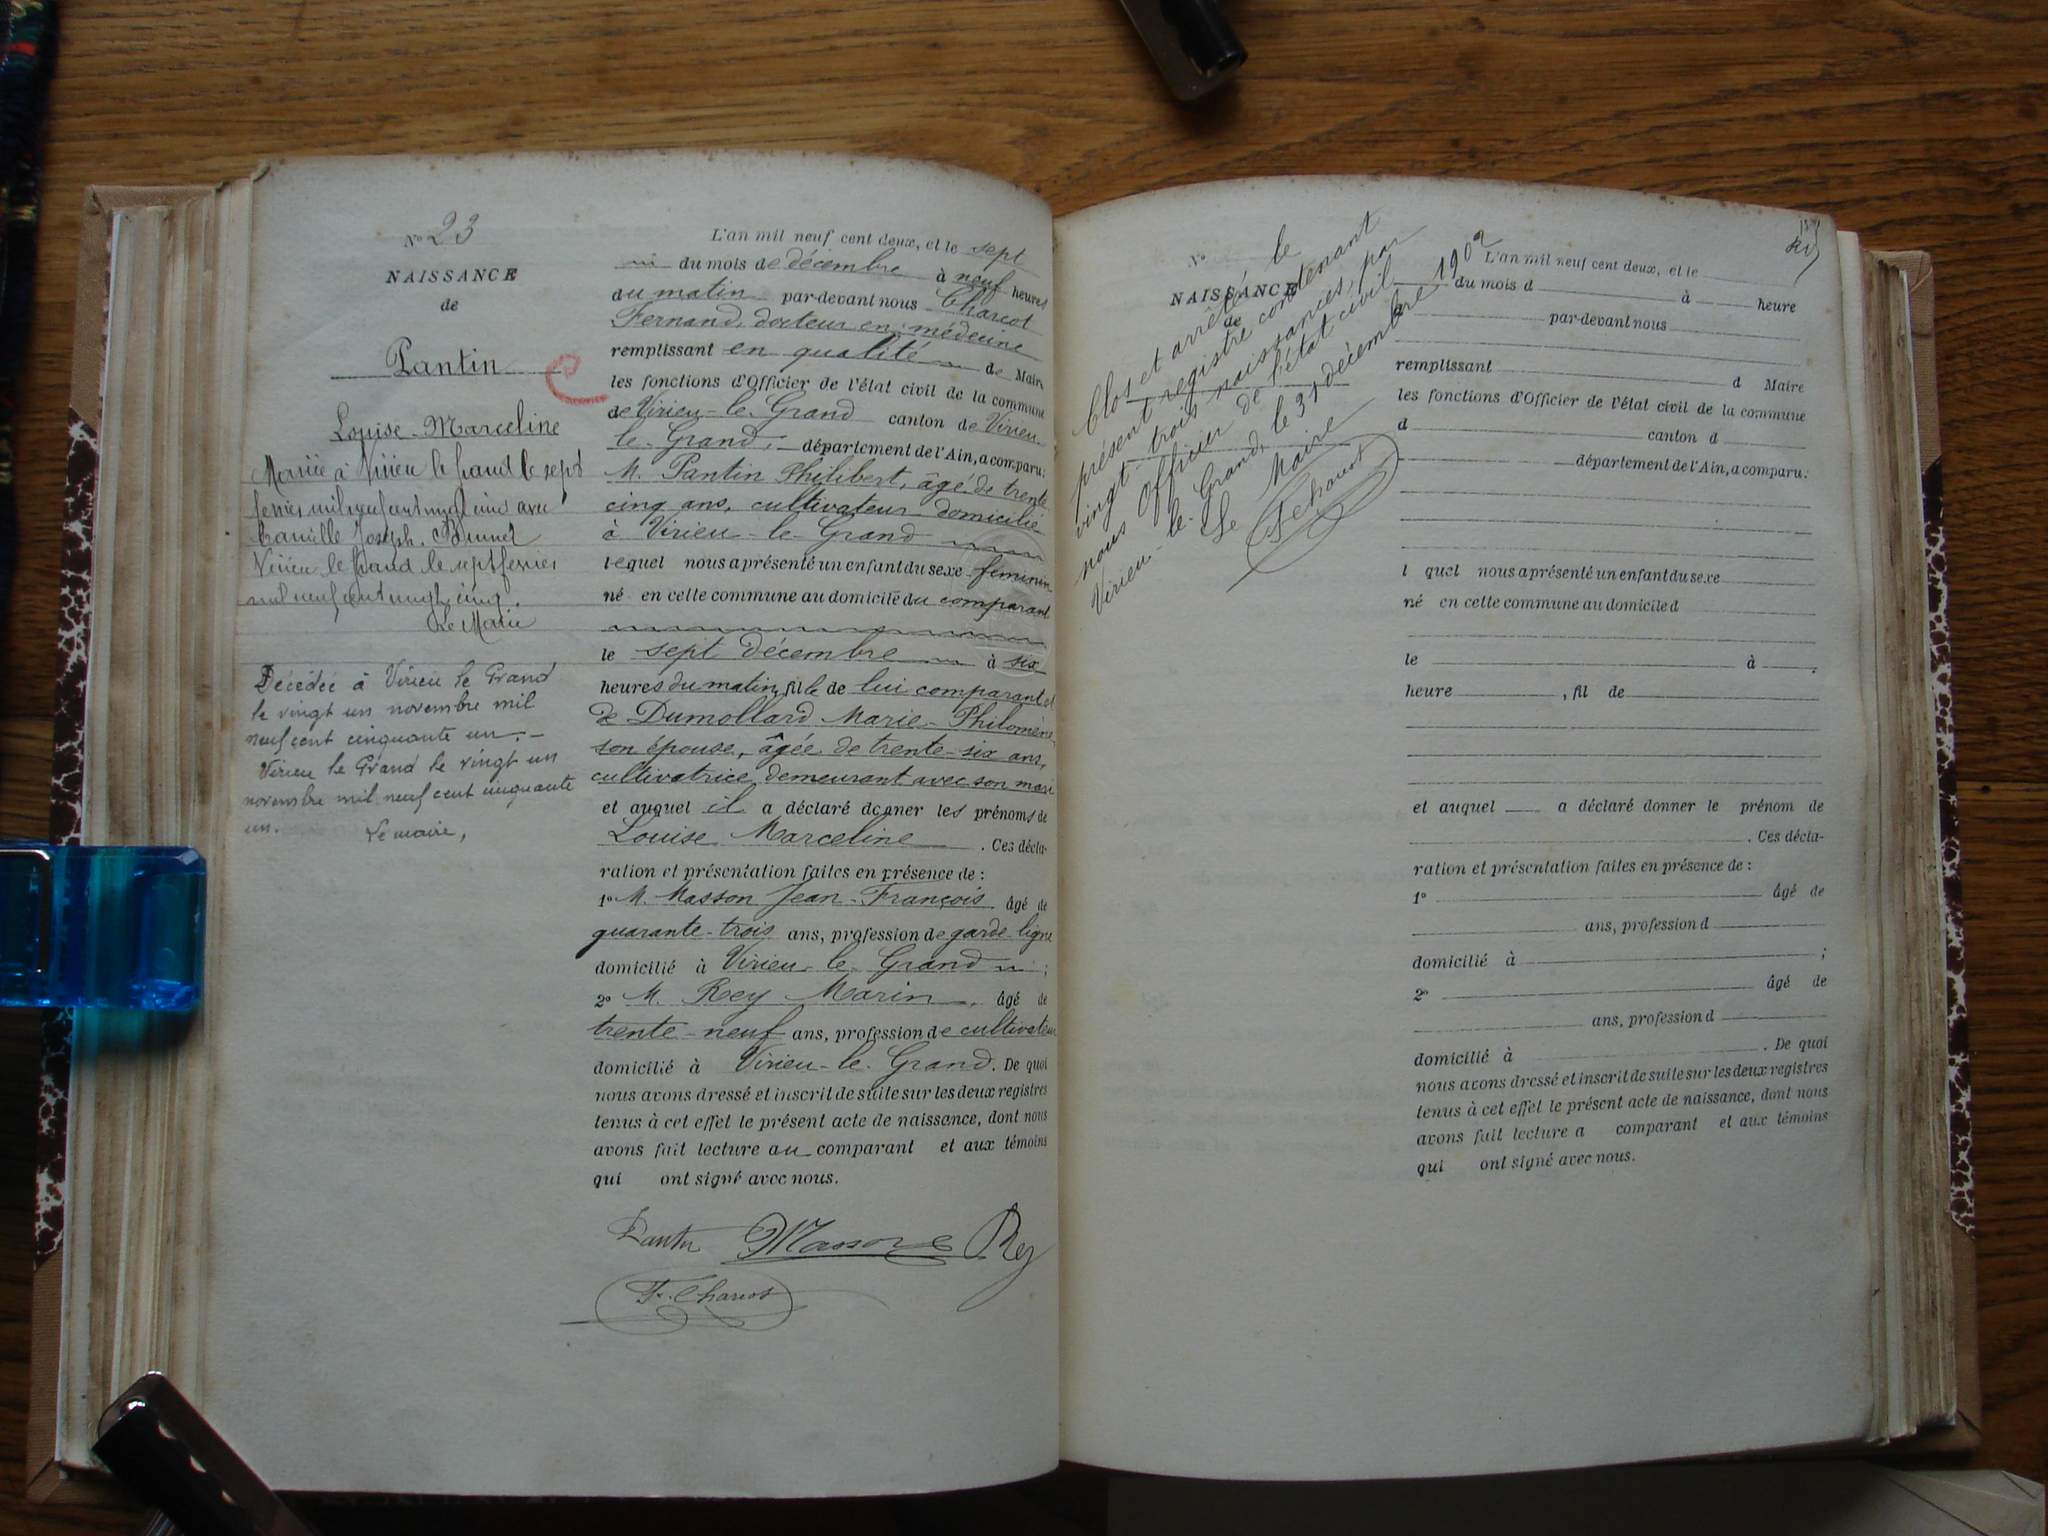 N° 23
NAISSANCE
de
Pantin
Louise-Marceline
Mariée à Virieu le Grand le sept
février mil neuf cent vingt cinq avec
Camille Joseph Brunet
Virieu le Grand le sept février
mil neuf cent vingt cinq.
Le Maire
Décédée à Virieu le Grand
le vingt un novembre mil
neuf cent cinquante un.-
Virieu le Grand le vingt un
novembre mil neuf cent cinquante
un. Le maire,
L'an mil neuf cent deux, et le sept
du mois de décembre à neuf heures
du matin par-devant nous Charcot
Fernand, docteur en médecine
remplissant en qualité de Maire
les fonctions d'Officier de l'état civil de la commune
de Virieu-le-Grand canton de Virieu-
le-Grand, département de l'Ain, a comparu:
M. Pantin Philibert, âgé de trente
cinq ans, cultivateur domicilié
à Virieu-le-Grand
lequel nous a présenté un enfant du sexe féminin
né en cette commune au domicile du comparant
le sept décembre à six
heures du matin, fille de lui comparant et
de Dumollard Marie-Philomène
son épouse, âgée de trente-six ans,
cultivatrice demeurant avec son mari
et auquel il a déclaré donner les prénoms de
Louise Marceline. Ces décla-
ration et présentation faites en présence de :
1° M. Masson Jean-François âgé de
quarante-trois ans, profession de garde-ligne
domicilié à Virieu-le-Grand ;
2° M. Rey Marin, âgé de
trente-neuf ans, profession de cultivateur
domicilié à Virieu-le-Grand. De quoi
nous avons dressé et inscrit de suite sur les deux registres
tenus à cet effet le présent acte de naissance, dont nous
avons fait lecture au comparant et aux témoins
qui ont signé avec nous.
Pantin Masson Rey
F. Charcot
N°
NAISSANCE
de
Clos et arrêté le
présent registre contenant
vingt-trois naissances, par
nous Officier de l'état civil
Virieu-le-Grand, le 31 décembre 1902
Le Maire
F. Charcot
L'an mil neuf cent deux, et le
du mois d à heure
par-devant nous
remplissant d Maire
les fonctions d'Officier de l'état civil de la commune
d canton d
département de l'Ain, a comparu:
l quel nous a présenté un enfant du sexe
né en cette commune au domicile d
le à
heure , fil de
et auquel a déclaré donner le prénom de
. Ces décla-
ration et présentation faites en présence de :
1° âgé de
ans, profession d
domicilié à ;
2° âgé de
ans, profession d
domicilié à . De quoi
nous avons dressé et inscrit de suite sur les deux registres
tenus à cet effet le présent acte de naissance, dont nous
avons fait lecture a comparant et aux témoins
qui ont signé avec nous.